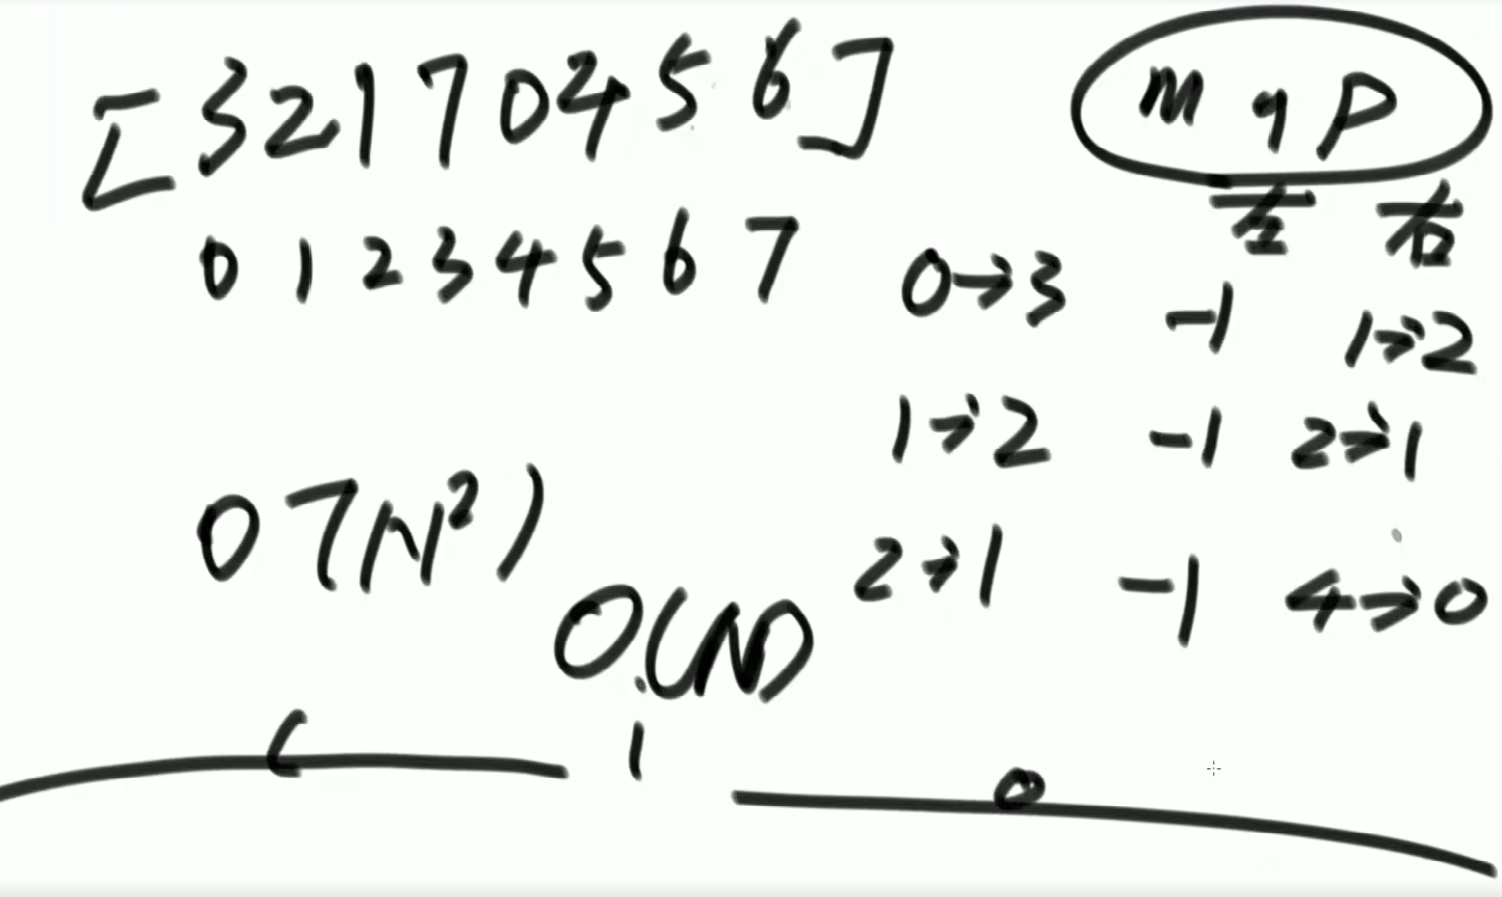 [3 2 1 7 0 4 5 6]
0 1 2 3 4 5 6 7
map
左 右
0→3 -1 1→2
1→2 -1 2→1
2→1 -1 4→0
O(N²)
O(N)